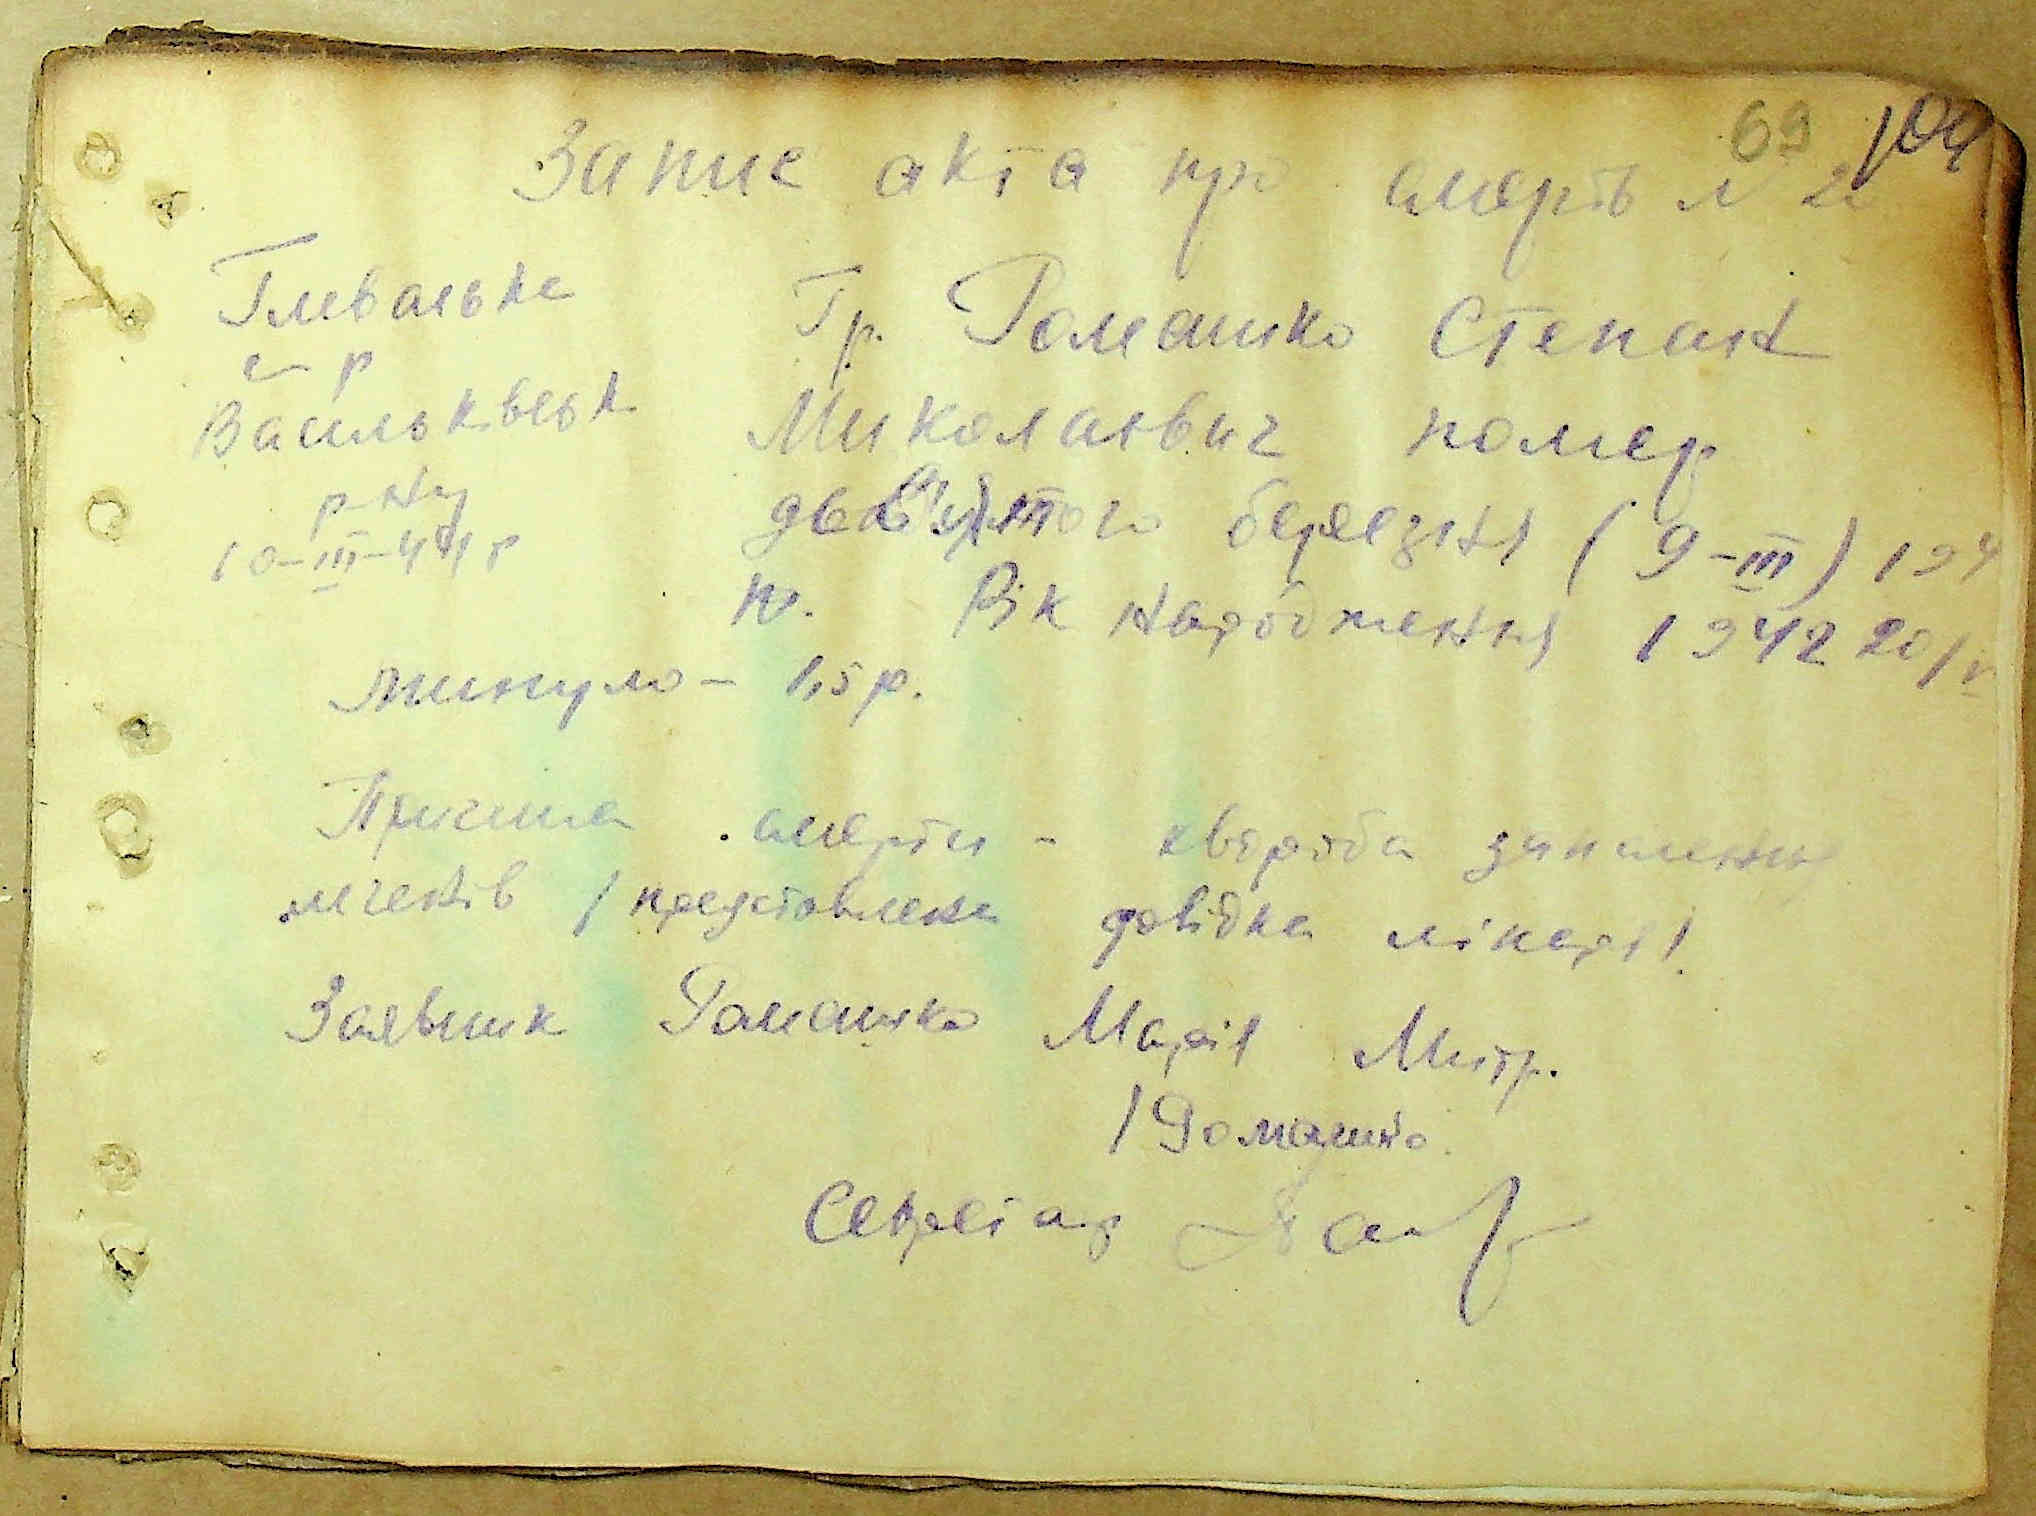 69 104
Запис акта про смерть № 22
Глеваське
с-р
Васильківськ
р-ну
10-III-44 р
Гр. Ромашко Степан
Миколаєвич помер
дев'ятого березня (9-III) 194
Рік народження 1942 20/
минуло - 1,5 р.
Причина смерти - хвороба запалення
легенів / представлена довідка лікаря/.
Заявник Ромашко Марія Митр.
/Ромашко.
Секретар